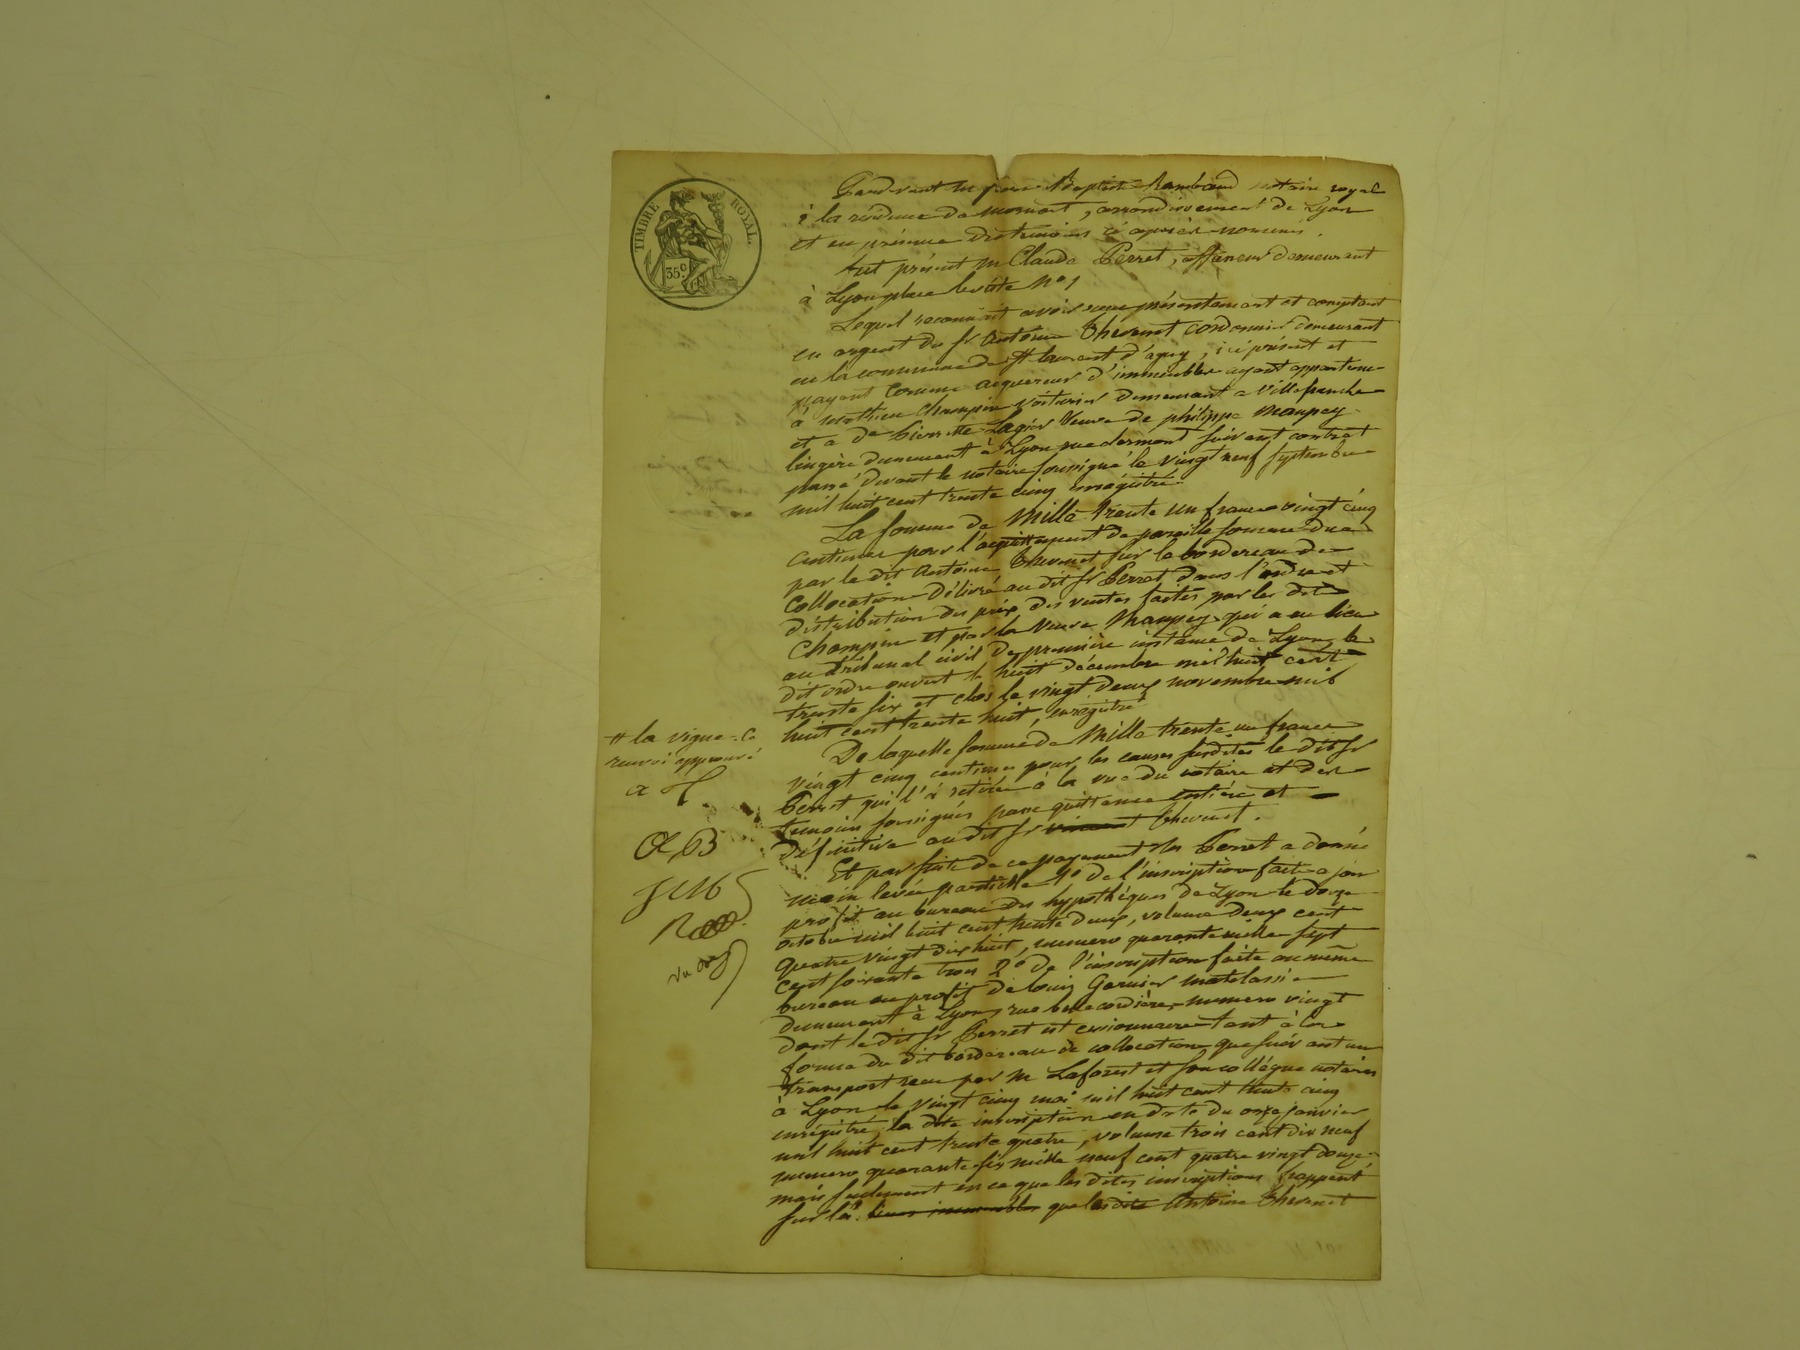 TIMBRE ROYAL.
35c
Pardevant Me Jean Baptiste Rambaud notaire royal
à la résidence de Mornant, arrondissement de Lyon
et en présence des témoins ci après nommés.
fut présent Mr Claude Perret, affaneur demeurant
à Lyon place No 1
Lequel reconnait avoir reçu présentement et comptant
en argent du Sr Antoine Thevenet cordonnier demeurant
en la commune de St laurent d'agny, ici présent et
payant comme acquereur d'immeubles ayant appartenu
à Mathieu Champin voiturier demeurant a Villefranche
et a de Pierrette Lagier Veuve de philippe Maupey
lingère demeurant à Lyon rue clermont suivant contrat
passé devant le notaire soussigné le vingt neuf septembre
mil huit cent trente cinq enregistré.
La somme de Mille trente un francs vingt cinq
centimes pour l'acquittement de pareille somme due
par le dit Antoine Thevenet sur le bordereau de
Collocation délivré au dit Sr Perret dans l'ordre et
distribution du prix des ventes faites par les dits
Champin et par la Veuve Maupey qui a eu lieu
au tribunal civil de première instance de Lyon, le
dit ordre ouvert le huit décembre mil huit cent
trente six et clos le vingt deux novembre mil
huit cent trente huit, enregistré
De laquelle somme de Mille trente un francs
vingt cinq centimes pour les causes susdites le dit Sr
Perret qui l'a retirée à la vue du notaire et des
témoins soussignés passe quittance entière et
définitive au dit Sr Thevenet.
Et par suite de ce payement Mr Perret a donné
main levée partielle 1o de l'inscription faite a son
profit au bureau des hypothèques de Lyon le douze
octobre mil huit cent trente deux, volume deux cent
quatre vingt dix huit, numero quarante mille sept
cent soixante trois 2o de l'inscription faite au même
bureau au profit de Louis Garnier matelassier
demeurant à Lyon, rue numero vingt
dont le dit Sr Perret est cessionnaire tant à la
forme du dit bordereau de collocation que suivant un
transport reçu par Me Laforest et son collègue notaires
à Lyon le vingt cinq mai mil huit cent trente cinq
enregistré, la dite inscription en date du onze janvier
mil huit cent trente quatre, volume trois cent dix neuf
numero quarante six mille neuf cent quatre vingt douze
mais seulement en ce que les dites inscriptions frappent
sur la immeubles que le dit Antoine Thevenet
# la vigne. Ce
renvoi approuvé